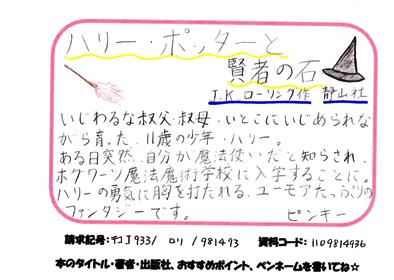 ハリー・ポッターと
賢者の石
J.K.ローリング作 静山社
いじわるな叔父・叔母・いとこにいじめられな
がら育った、11歳の少年・ハリー。
ある日突然、自分が魔法使いだと知らされ、
ホグワーツ魔法魔術学校に入学することに。
ハリーの勇気に胸を打たれる、ユーモアたっぷりの
ファンタジーです。 ピンキー
請求記号:チコJ933/ ロリ /981493 資料コード:1109814936
本のタイトル・著者・出版社、おすすめポイント、ペンネームを書いてね☆